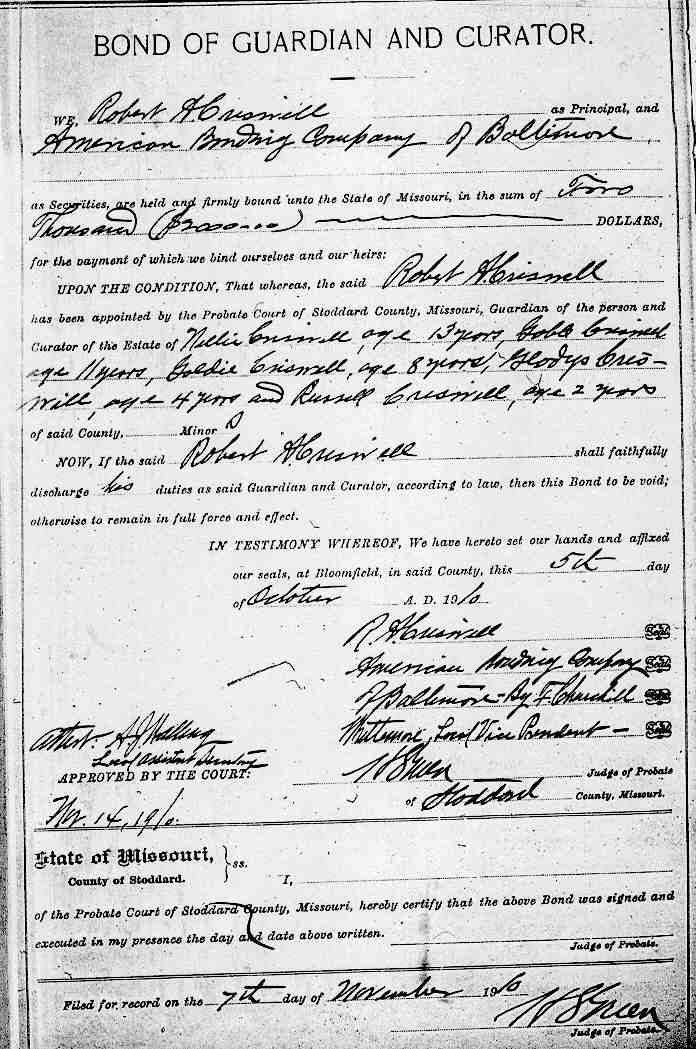 BOND OF GUARDIAN AND CURATOR.
WE, Robert A Criswell as Principal, and
American Bonding Company of Baltimore
as Securities, are held and firmly bound unto the State of Missouri, in the sum of Two
Thousand DOLLARS,
for the payment of which we bind ourselves and our heirs:
UPON THE CONDITION, That whereas, the said Robert A. Criswell
has been appointed by the Probate Court of Stoddard County, Missouri, Guardian of the person and
Curator of the Estate of Nellie Criswell, age 13 years, Criswell
age 11 years, Goldie Criswell, age 8 years, Gladys Cris-
well, age 4 years and Russell Criswell, age 2 years
of said County, Minor s
NOW, If the said Robert A. Criswell shall faithfully
discharge his duties as said Guardian and Curator, according to law, then this Bond to be void;
otherwise to remain in full force and effect.
IN TESTIMONY WHEREOF, We have hereto set our hands and affixed
our seals, at Bloomfield, in said County, this 5th day
of October A. D. 1910
R. A. Criswell Seal
American Bonding Company Seal
of Baltimore - By F Churchill Seal
Whittemore, Local Vice President - Seal
Attest. A. J.
Local Assistant Secretary
APPROVED BY THE COURT:
W S Green Judge of Probate
of Stoddard County, Missouri.
Nov. 14, 1910.
State of Missouri,
County of Stoddard. } ss. I,
of the Probate Court of Stoddard County, Missouri, hereby certify that the above Bond was signed and
executed in my presence the day and date above written.
Judge of Probate.
Filed for record on the 7th day of November 1910
W S Green
Judge of Probate.